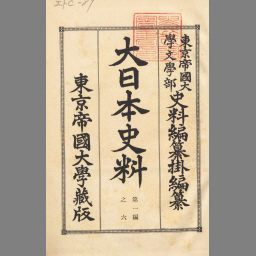 東京帝國大
學文學部
史料編纂掛編纂
大日本史料
第一編
之六
東京帝國大學藏版